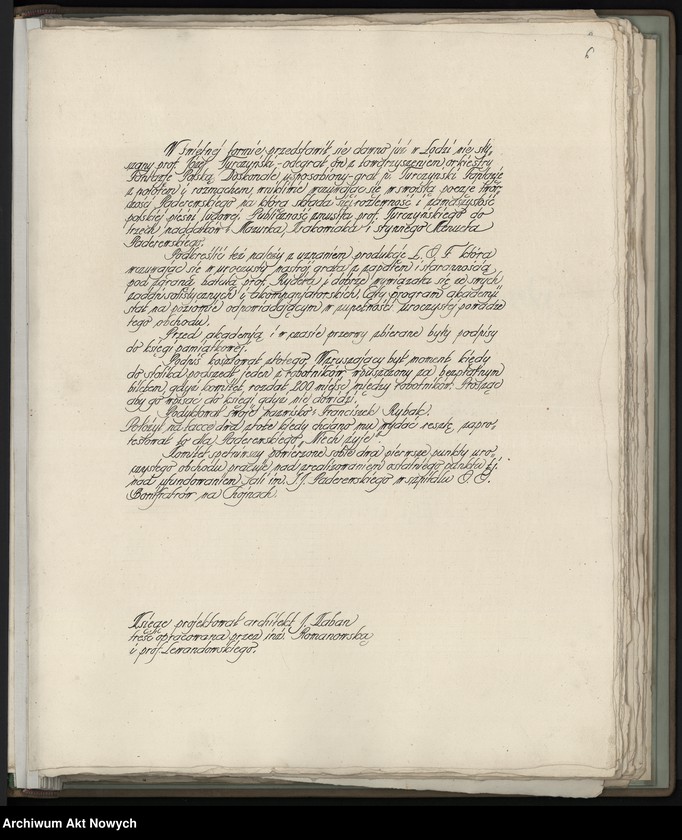 6
W świetnej formie, przedstawił się dawno już w Łodzi nie sły-
szany prof. Józef Turczyński - odegrał on z towarzyszeniem orkiestry
Fantazję Polską. Doskonale usposobiony - grał p. Turczyński Fantazję
z polotem i rozmachem, wybitnie wczuwając się w swoistą poezję twór-
czości Paderewskiego na którą składa się rozlewność i zamaszystość
polskiej pieśni ludowej. Publiczność zmusiła prof. Turczyńskiego do
trzech naddatków: Mazurka, Krakowiaka i słynnego Menueta
Paderewskiego.
Podkreślić też należy z uznaniem produkcje Ł. O. F. która
wczuwając się w uroczysty nastrój grała z zapałem i starannością
pod sprawną batutą prof. Rydera i dobrze wywiązała się ze swych
zadań solistycznych i akompanjatorskich. Cały program akademji
stał na poziomie odpowiadającym w zupełności uroczystej powadze
tego obchodu.
Przed akademją i w czasie przerwy zbierane były podpisy
do księgi pamiątkowej.
Podpis kosztował złotego. Wzruszający był moment kiedy
do stolika podszedł jeden z robotników wpuszczony za bezpłatnym
biletem, gdyż komitet rozdał 200 miejsc między robotników. Prosząc
aby go wpisać do księgi gdyż nie dowidzi.
Podyktował swoje nazwisko: Franciszek Rybak.
Położył na tacce dwa złote kiedy chciano mu wydać resztę, zapro-
testował to dla Paderewskiego „Niech żyje".
Komitet spełniwszy powierzone sobie dwa pierwsze punkty uro-
czystego obchodu pracuje nad zrealizowaniem ostatniego punktu t.j.
nad ufundowaniem sali im. I. J. Paderewskiego w szpitalu O. O.
Bonifratrów na Chojnach.
Księgę projektował architekt J. Kaban
treść opracowana przez inż. Romanowską
i prof. Lewandowskiego.
Archiwum Akt Nowych